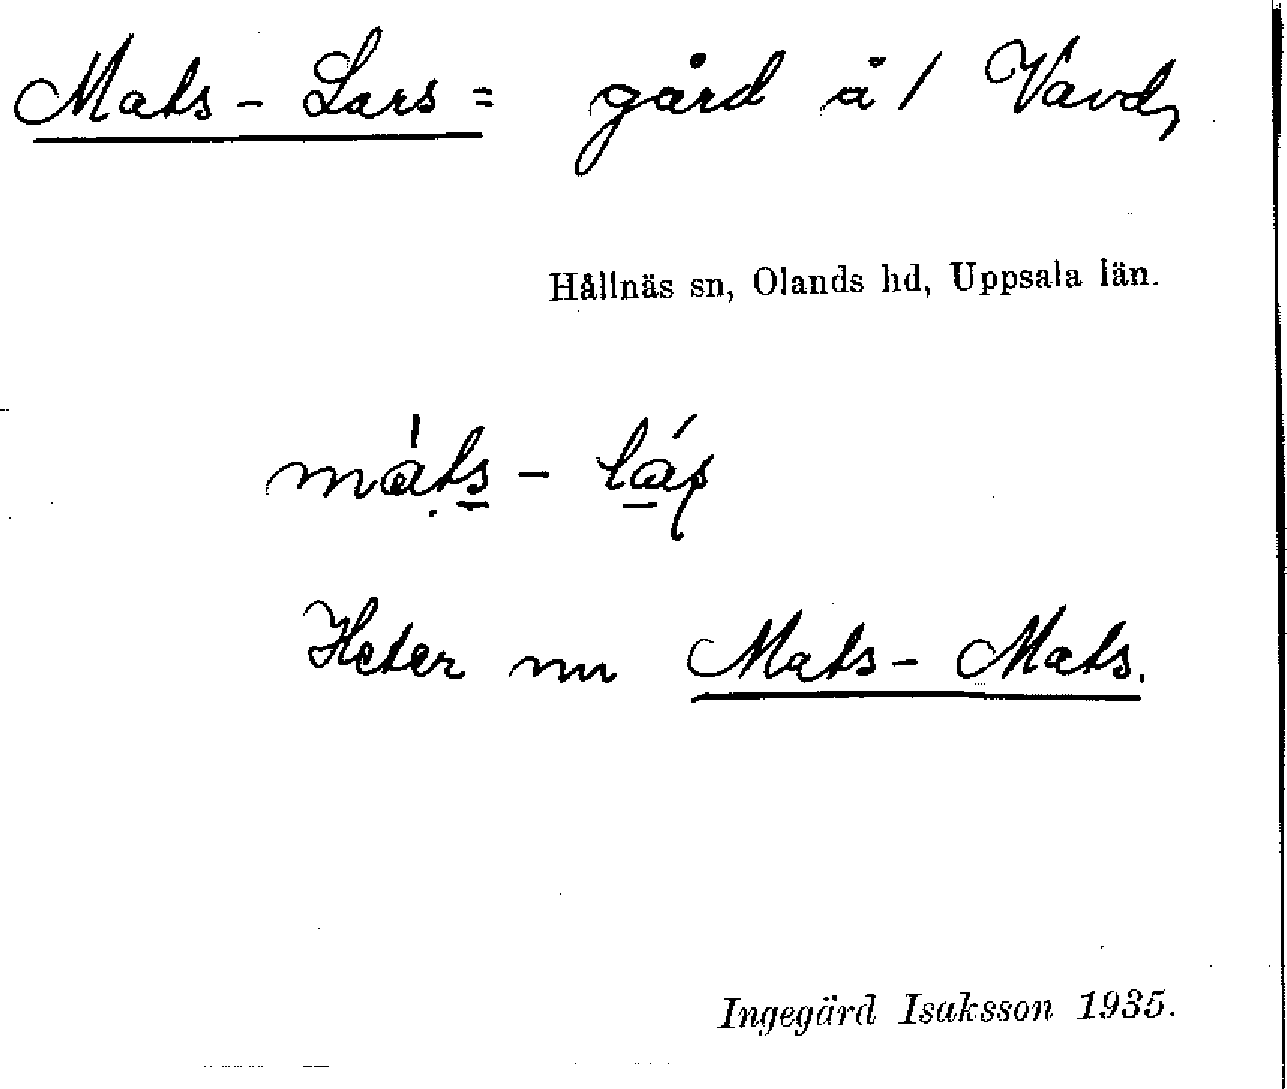 Mats - Lars = gård å 1 Vavd,
Hållnäs sn, Olands hd, Uppsala län.
mats - las
Heter nu Mats - Mats.
Ingegärd Isaksson 1935.